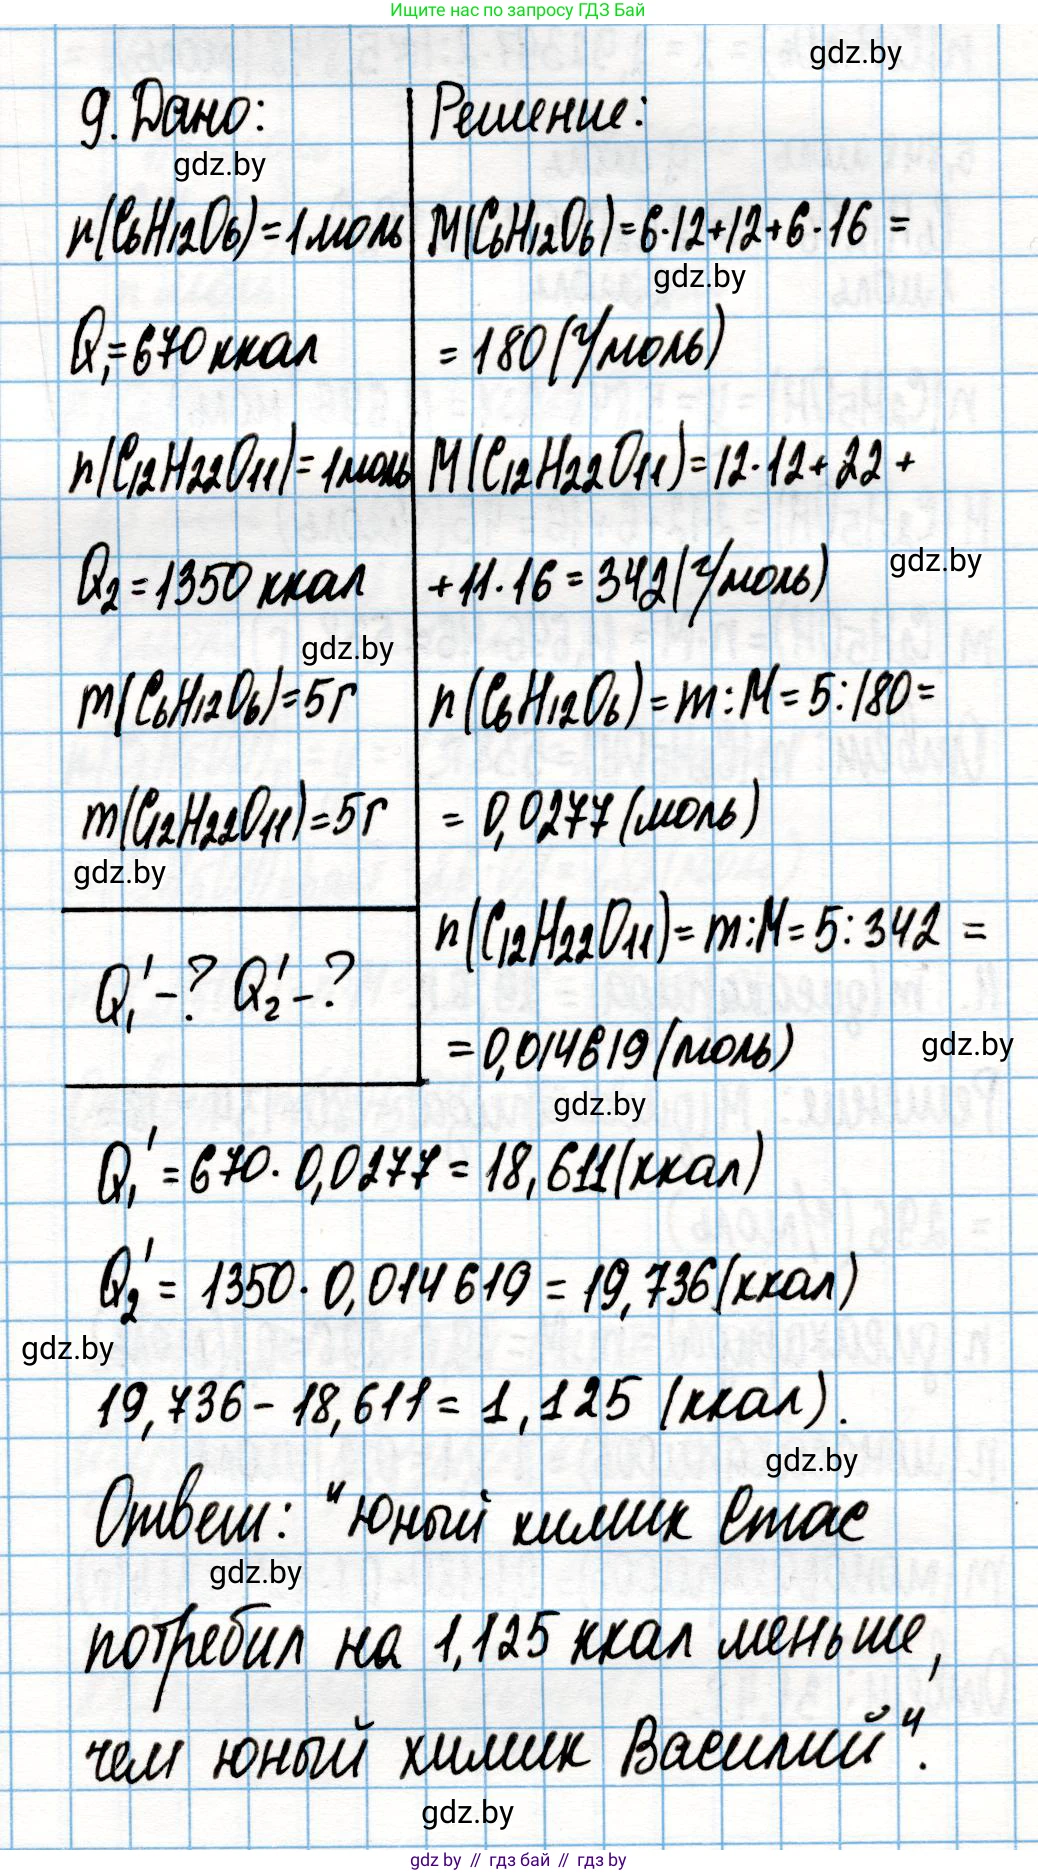 Ищите нас по запросу ГДЗ Бай
gdz.by
9. Дано:
gdz.by
n(C₆H₁₂O₆)=1 моль
Q₁=670 ккал
n(C₁₂H₂₂O₁₁)=1 моль
Q₂=1350 ккал
gdz.by
m(C₆H₁₂O₆)=5г
m(C₁₂H₂₂O₁₁)=5г
gdz.by
Q₁'-? Q₂'-?
Решение:
M(C₆H₁₂O₆)=6·12+12+6·16 =
gdz.by
=180(г/моль)
M(C₁₂H₂₂O₁₁)=12·12+22+
gdz.by
+11·16=342(г/моль)
n(C₆H₁₂O₆)=m:M=5:180=
= 0,0277(моль)
n(C₁₂H₂₂O₁₁)=m:M=5:342 =
=0,014619(моль)
gdz.by
gdz.by
Q₁'=670·0,0277=18,611(ккал)
Q₂'= 1350·0,014619=19,736(ккал)
gdz.by
19,736-18,611= 1,125 (ккал).
gdz.by
Ответ: "Юный химик Стас
gdz.by
потребил на 1,125 ккал меньше,
чем юный химик Василий".
gdz.by
gdz.by // гдз бай // gdz.by